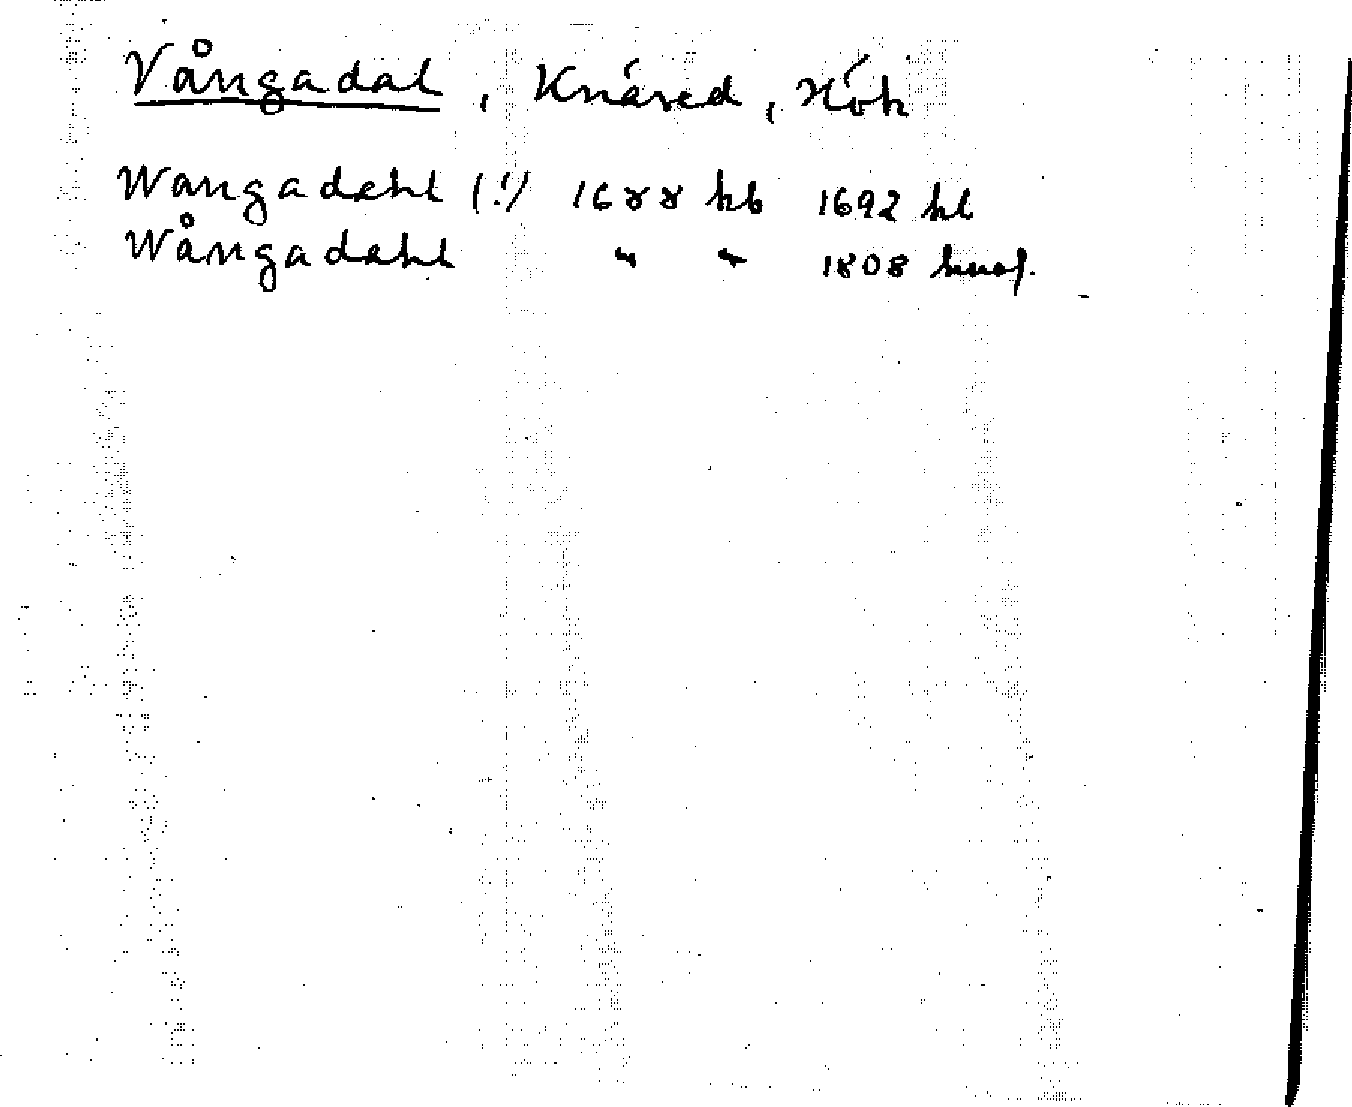 Vångadal, Knäred, Hök
Wangadahl (!) 1688 kb 1692 kb
Wångadahl " " 1808